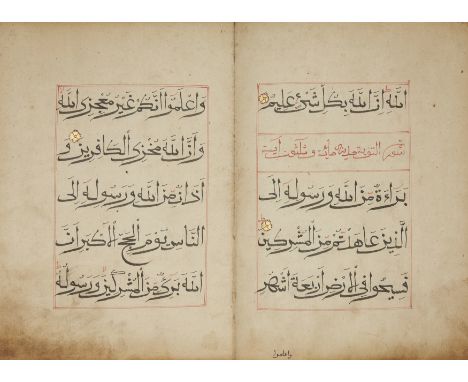 الله ان الله بكل شئ عليم
سورة التوبة مائة وثلثون آية
براءة من الله ورسوله الى
الذين عاهدتم من المشركين
فسيحوا في الارض اربعة اشهر
واعلموا
واعلموا انكم غير معجزي الله
وان الله مخزي الكافرين و
اذان من الله ورسوله الى
الناس يوم الحج الاكبر ان
الله برئ من المشركين ورسوله